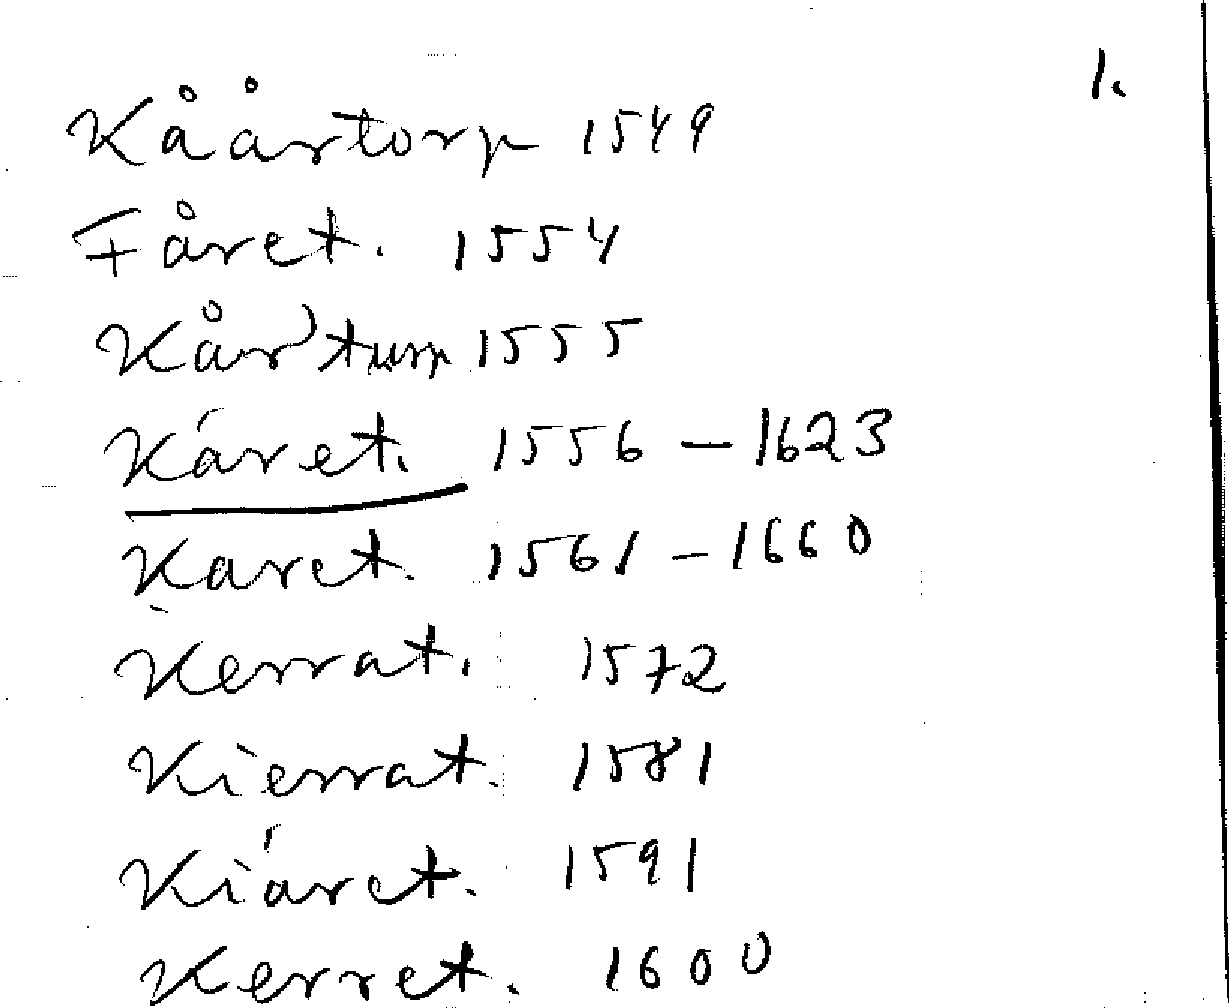 1.
Kååstorp 1549
Fåret. 1554
Kårturp 1555
Käret. 1556 – 1623
Karet. 1561 – 1660
Kerrat. 1572
Kierrat. 1581
Kiäret. 1591
Kerret. 1600